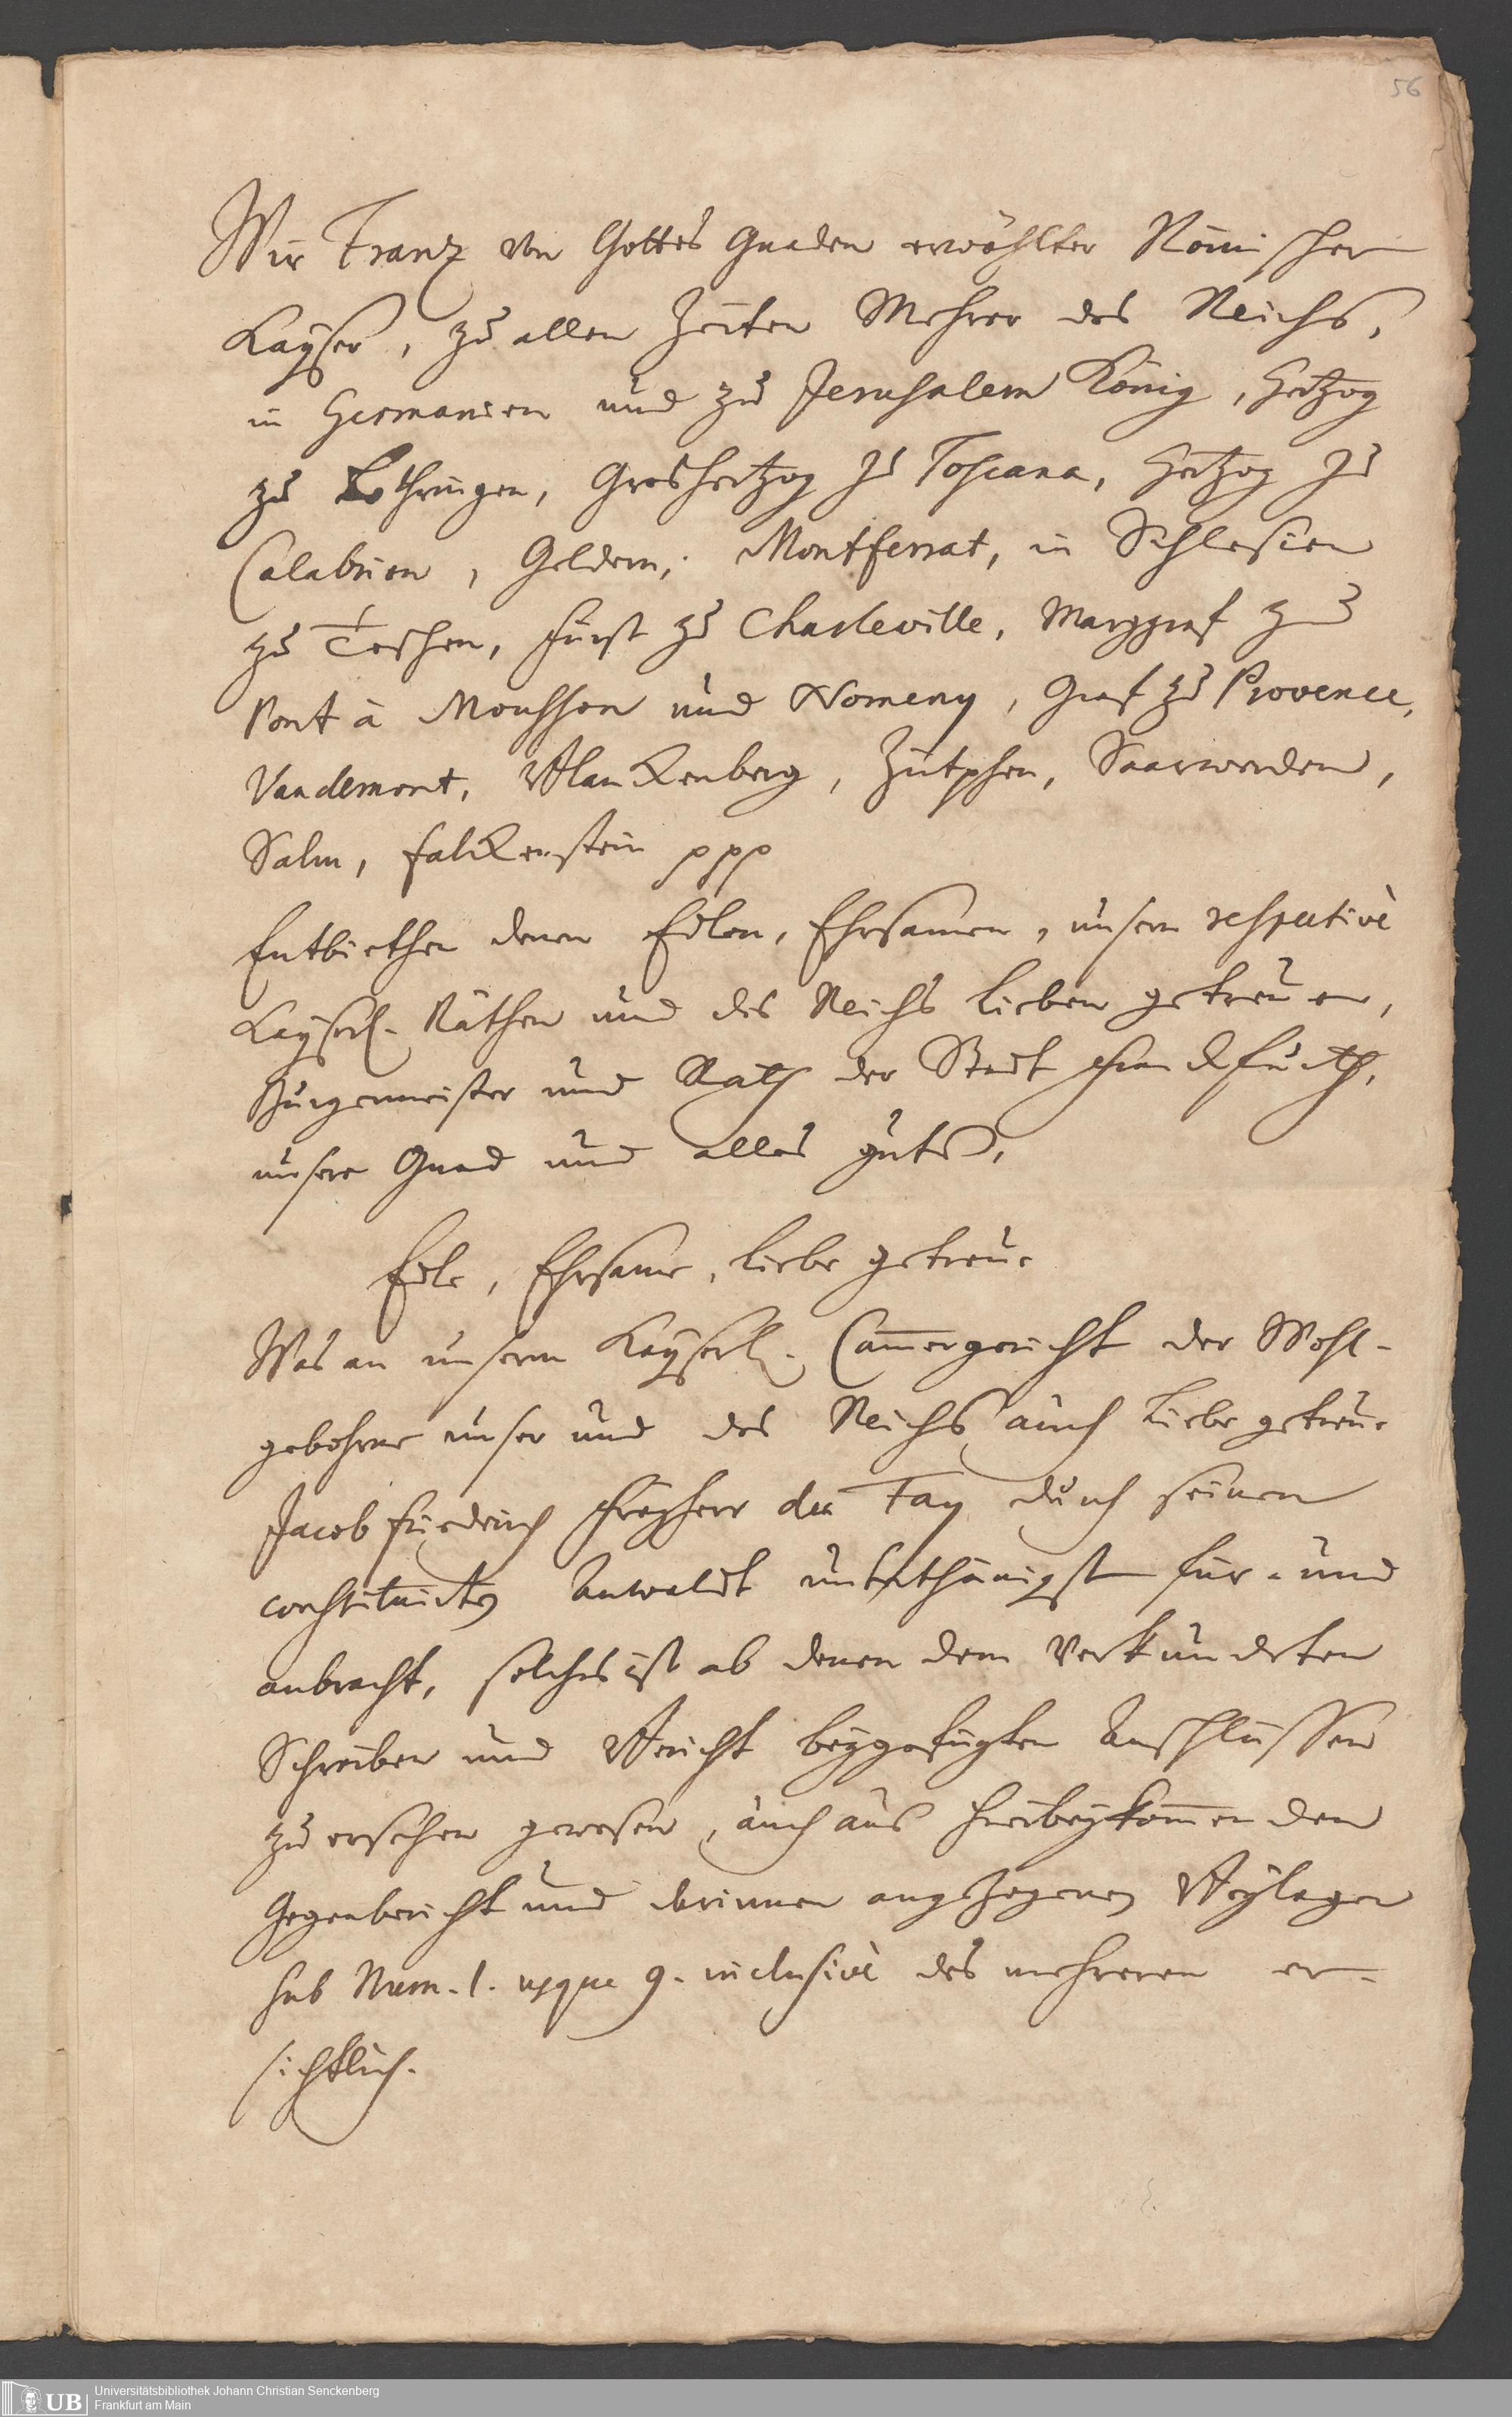 56
Wir Franz von Gottes Gnaden erwöhlter Römischer
Kayser, zu allen Zeiten Mehrer des Reichs,
in Germanien und zu Jerusalem König, Hertzog
zu Lothringen, Groshertzog zu Toscana, Hertzog zu
Calabrien, Geldern, Montferrat, in Schlesien
zu Teschen, Fürst zu Charleville, Marggraf zu
Pont à Mousson und Nomeny, Graf zu Provence,
Vaudemont, Blanckenberg, Zütphen, Saarwerden,
Salm, Falckenstein ppp
Entbiethen denen Edlen, Ehrsamen, unsern respectivè
Kayserl. Räthen und des Reichs lieben getreuen,
Burgermeister und Rath der Stadt Franckfurth,
unsere Gnad und alles guts,
Edle, Ehrsame, liebe getreue
Was an unserm Kayserl. Cammergericht der Wohl-
gebohrne unser und des Reichs auch liebe getreue
Jacob Friedrich Freyherr du Fay durch seinen
constituirten Anwaldt unterthänigst für- und
anbracht, solches ist ab denen dem verkündeten
Schreiben und Bericht beygefügten Anschlüssen
zu ersehen gewesen, auch aus hierbeykommenden
Gegenbericht und darinnen angezogenen Beylagen
sub Num. 1. usque 9. inclusivè des mehreren er-
sichtlich.
UB
Universitätsbibliothek Johann Christian Senckenberg
Frankfurt am Main